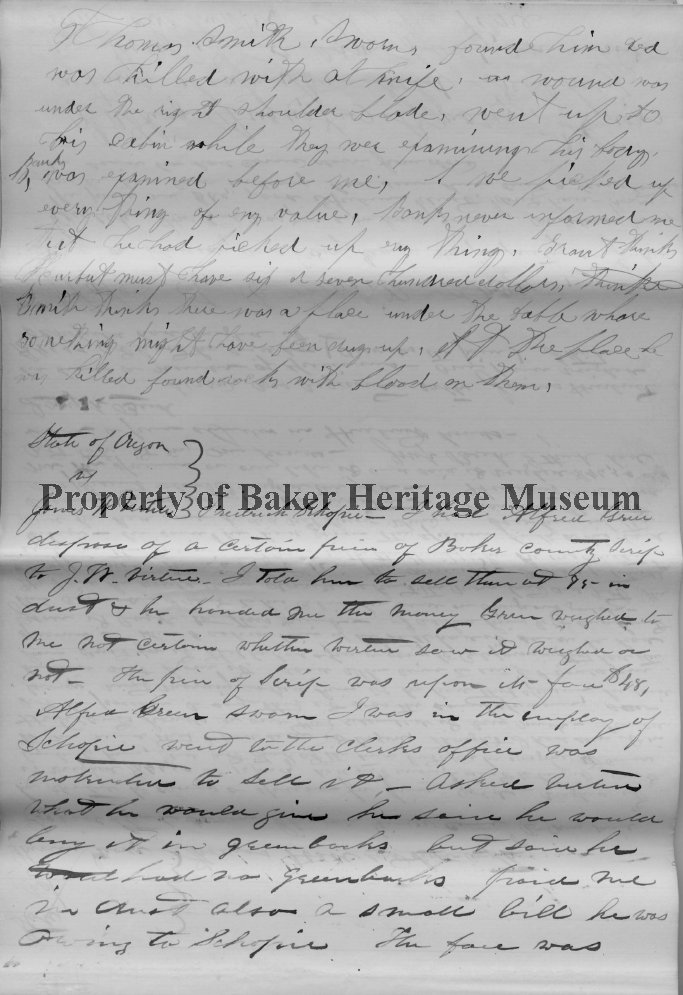 Thomas Smith, Sworn, found him ded
was killed with at knife, wound was
under the right shoulder blade, went up to
his cabin while they wer examining his body,
Banks
was examined before me, I we picked up
every thing of eny value, Banks never informed me
tht he had picked up eny thing, Grant thinks
must have six or seven hundred dollars, thinks
Smith thinks there was a place under the table whare
something might have been dug up, At the place he
was killed found rocks with blood on them,
State of Oregon
vs
James W Virtue } Fredrick Schopie – I had Alfred Green
Property of Baker Heritage Museum
dispose of a certain piece of Baker county Scrip
to J. W. Virtue – I told him to sell them at 95 in
dust & he handed me the money Green weighed to
me not certain whether virtue saw it weighed or
not – The piece of Scrip was upon its face $48,
Alfred Green sworn I was in the employ of
Schopie went to the clerks office was
instructed to sell it – Asked Virtue
what he would give he said he would
buy it in greenbacks but said he
had no Greenbacks paid me
in dust also a small bill he was
owing to Schopie The face was